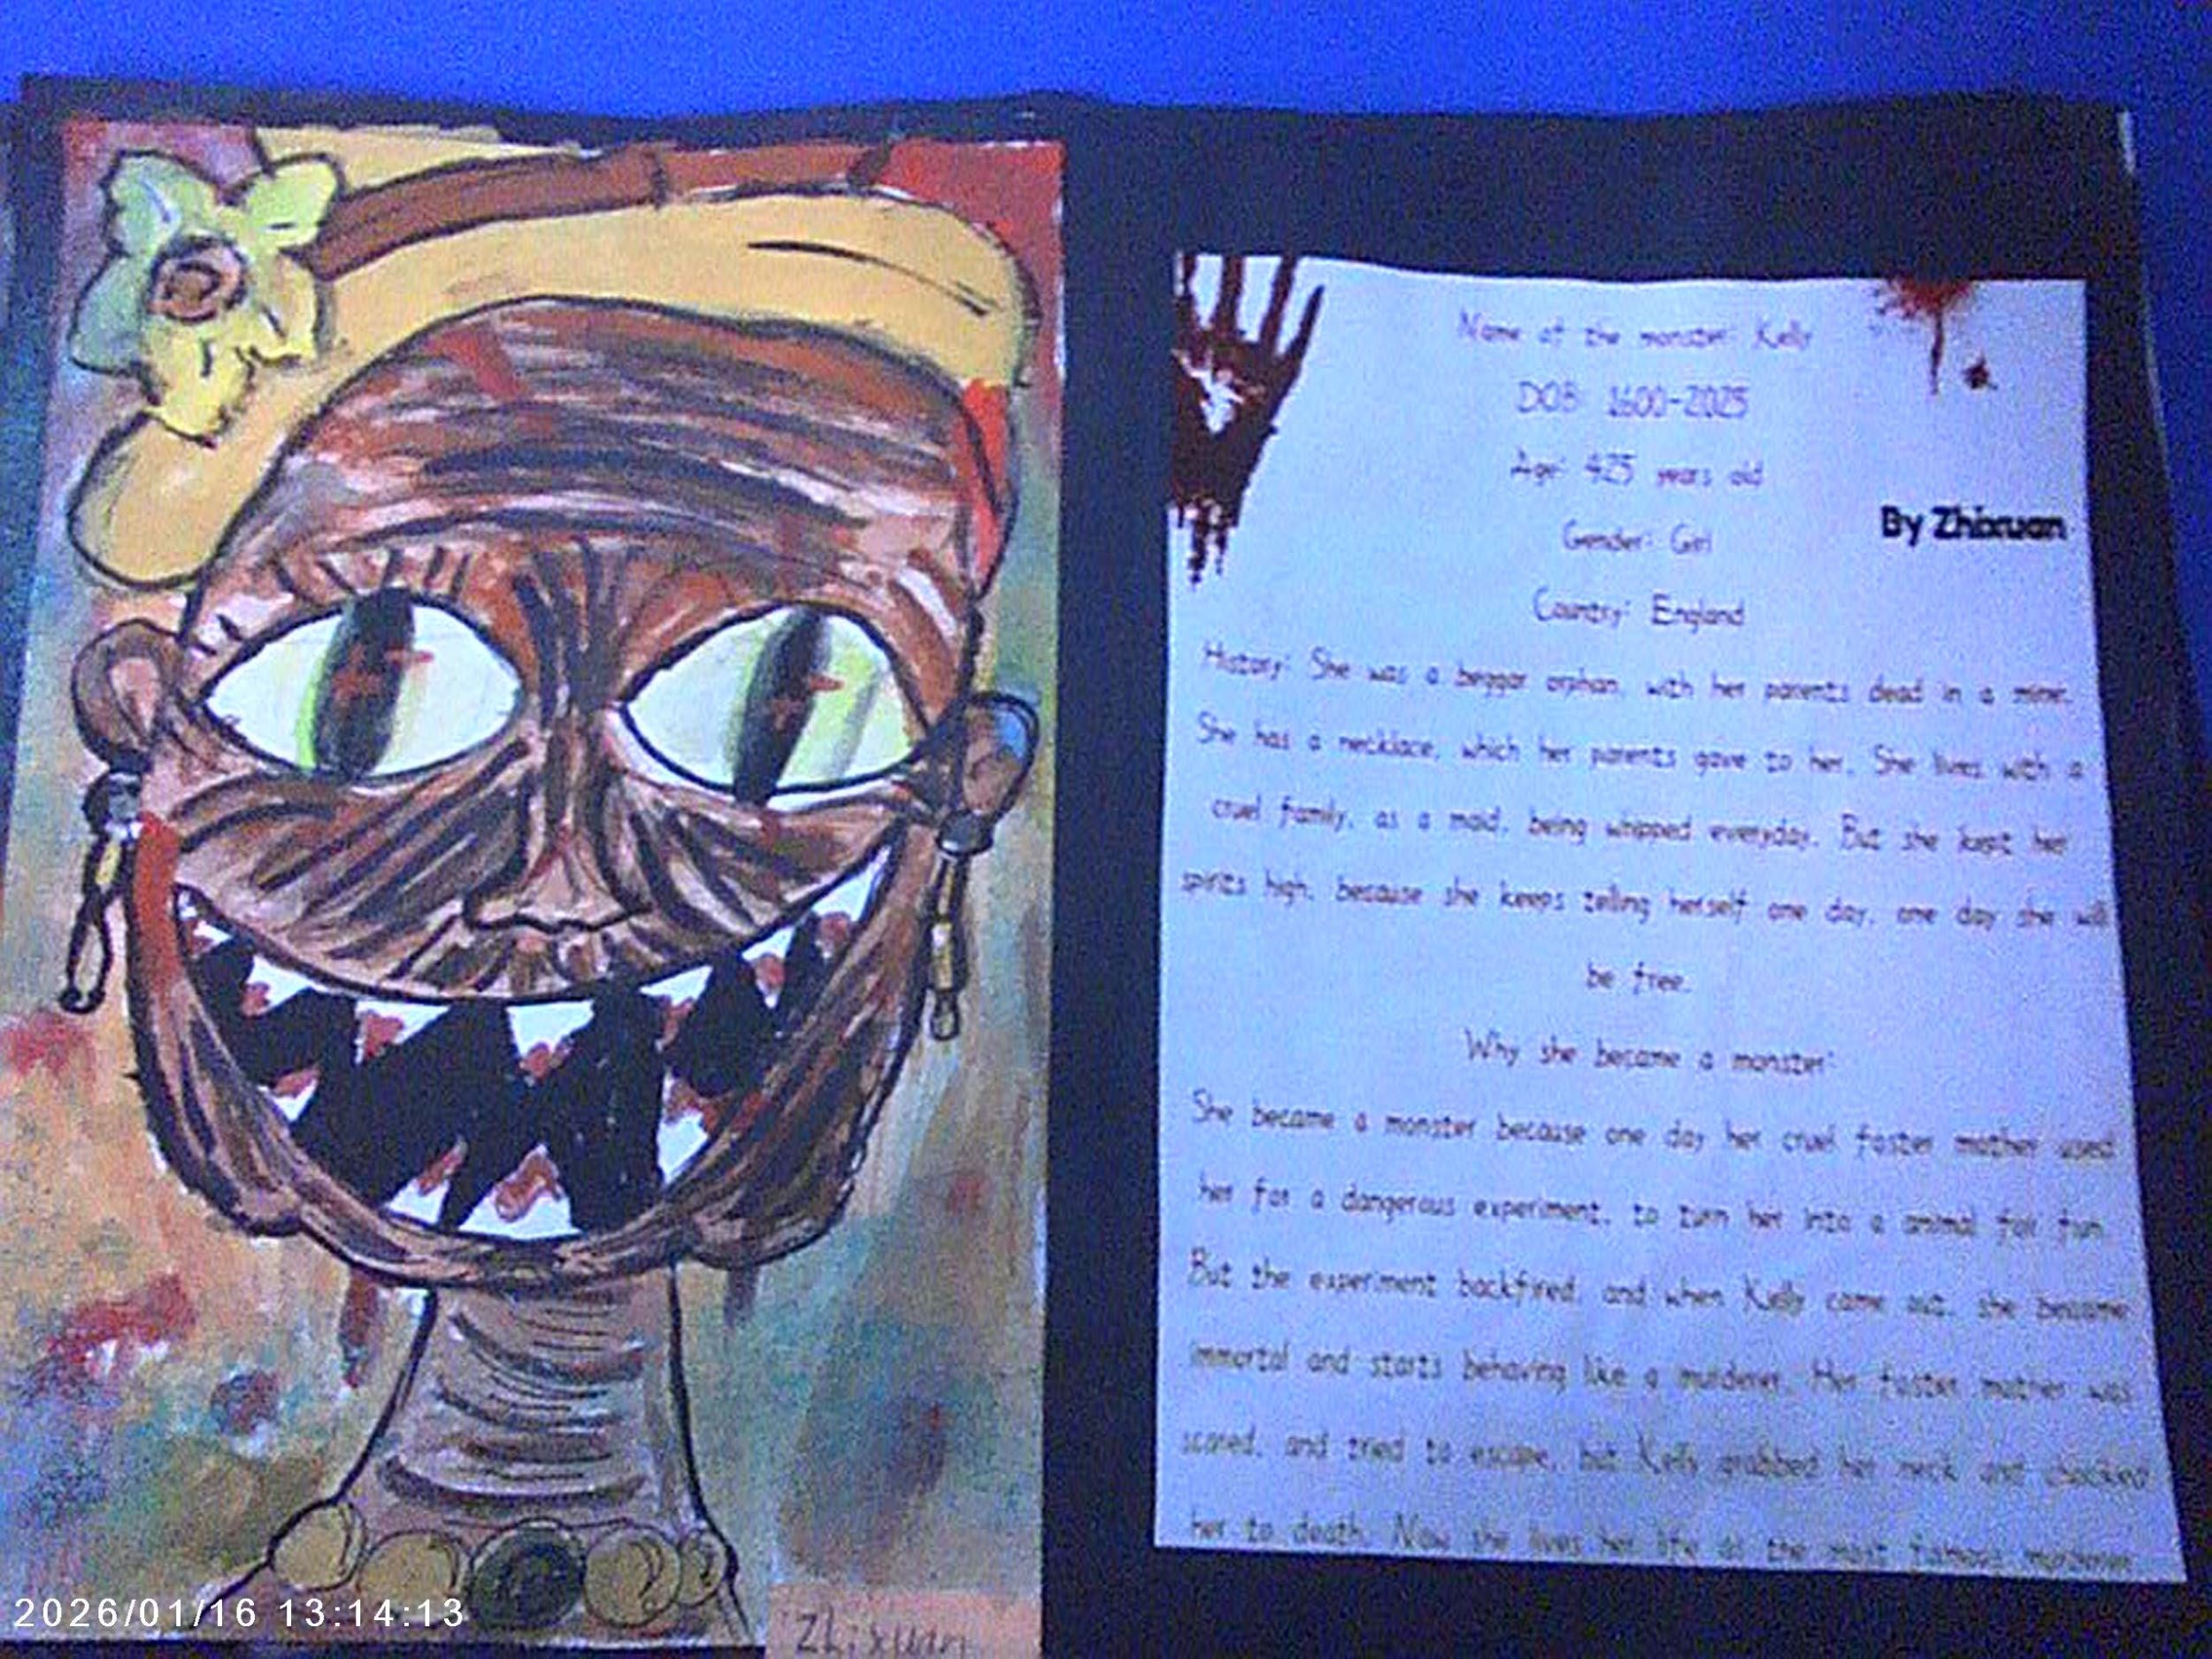 Name of the monster: Kelly
DOB: 1600-2025
Age: 425 years old
By Zhixuan
Gender: Girl
Country: England
History: She was a beggar orphan, with her parents dead in a mine.
She has a necklace, which her parents gave to her. She lives with a
cruel family, as a maid, being whipped everyday. But she kept her
spirits high, because she keeps telling herself one day, one day she will
be free.
Why she became a monster:
She became a monster because one day her cruel foster mother used
her for a dangerous experiment, to turn her into a animal for fun.
But the experiment backfired, and when Kelly came out, she became
immortal and starts behaving like a murderer. Her foster mother was
scared, and tried to escape, but Kelly grabbed her neck and
her to death. Now she lives her life as the most famous murderer
Zhixuan
2026/01/16 13:14:13